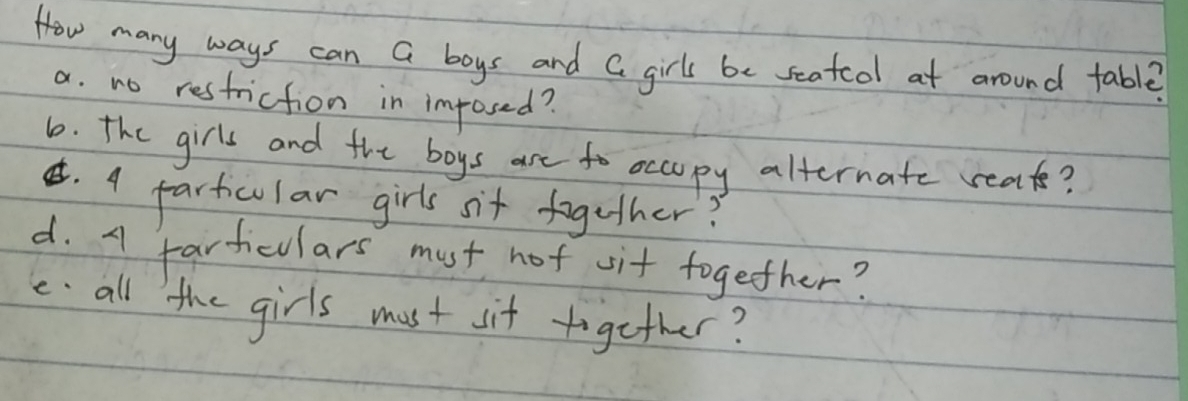 How many ways can 6 boys and 6 girls be seated at around table?
a. no restriction in imposed?
b. The girls and the boys are to occupy alternate seats?
c. 4 particular girls sit together?
d. 4 particulars must not sit together?
e. all the girls must sit together?